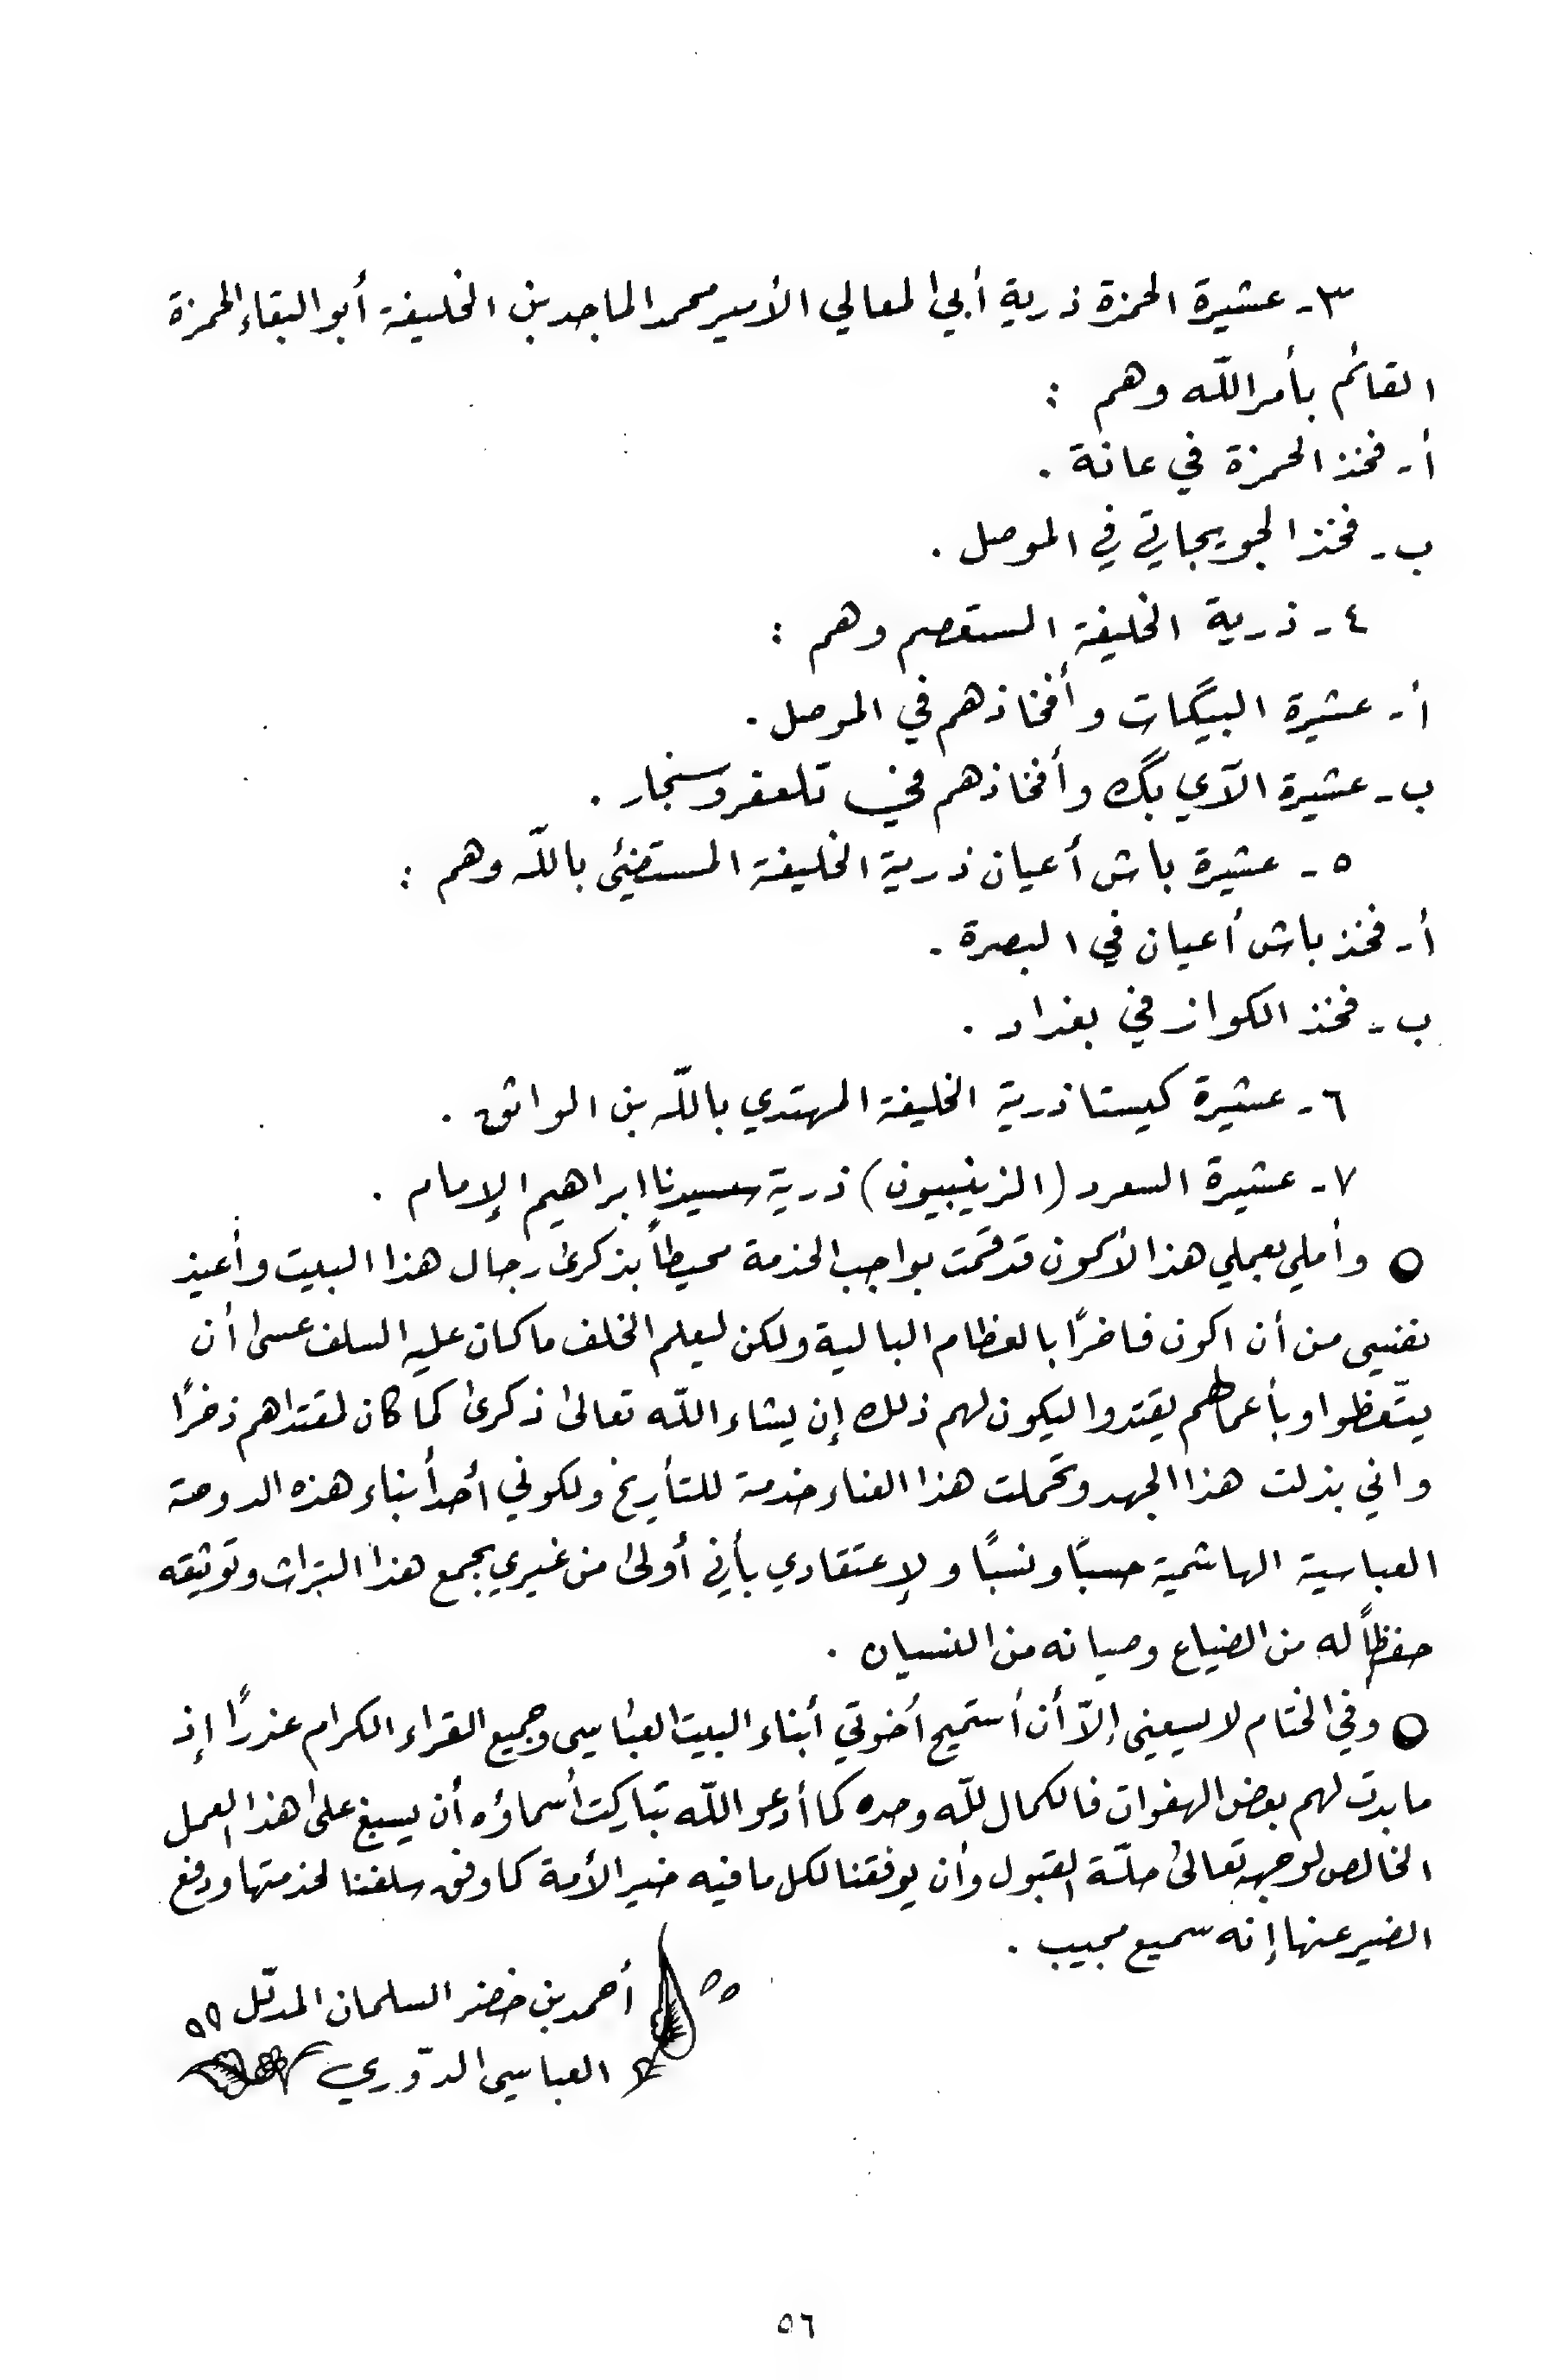 ٣- عشيرة الحمزة ذرية أبي المعالي الأمير محمد الماجد بن الخليفة أبو البقاء الحمزة
القائم بأمر اللّه وهم :
أ- فخذ الحمزة في عانة .
ب- فخذ الجويجاتي في الموصل .
٤- ذرية الخليفة المستعصم وهم :
أ- عشيرة البيگات وأفخاذهم في الموصل .
ب- عشيرة الآي بگ وأفخاذهم في تلعفر وسنجار .
٥- عشيرة باش أعيان ذرية الخليفة المستضيئ باللّه وهم :
أ- فخذ باش أعيان في البصرة .
ب- فخذ الكواز في بغداد .
٦- عشيرة كيستا ذرية الخليفة المهتدي باللّه بن الواثق .
٧- عشيرة السعرد (الزينبيون) ذرية سيدنا ابراهيم الإمام .
وأملي بعملي هذا لأكون قد قمت بواجب الخدمة محيطاً بذكرى رجال هذا البيت وأعيذ
نفسي من أن اكون فاخرًا بالعظام البالية ولكن ليعلم الخلف ما كان عليه السلف عسى أن
يتّعظوا وبأعمالهم يقتدوا ليكون لهم ذلك إن يشاء اللّه تعالى ذكرى كما كان لمقتداهم ذخرًا
واني بذلت هذا الجهد وتحملت هذا العناء خدمة للتأريخ ولكوني أحد أبناء هذه الدوحة
العباسية الهاشمية حسبًا ونسبًا ولإعتقادي بأني أولى من غيري بجمع هذا التراث وتوثيقه
حفظاً له من الضياع وصيانه من النسيان .
وفي الختام لا يسعني إلاّ أن أستميح أخوتي أبناء البيت العباسي وجميع القراء الكرام عذرًا إذ
ما بدت لهم بعض الهفوات فالكمال للّه وحده كما أدعو اللّه تباركت أسماؤه أن يسبغ على هذا العمل
الخالص لوجهه تعالى حلّة القبول وأن يوفقنا لكل ما فيه خير الأمة كما وفق سلفنا لخدمتها ودفع
الضير عنها إنه سميع مجيب .
أحمد بن خضر السلمان المدلّل
العباسي الدّوري
٥٦